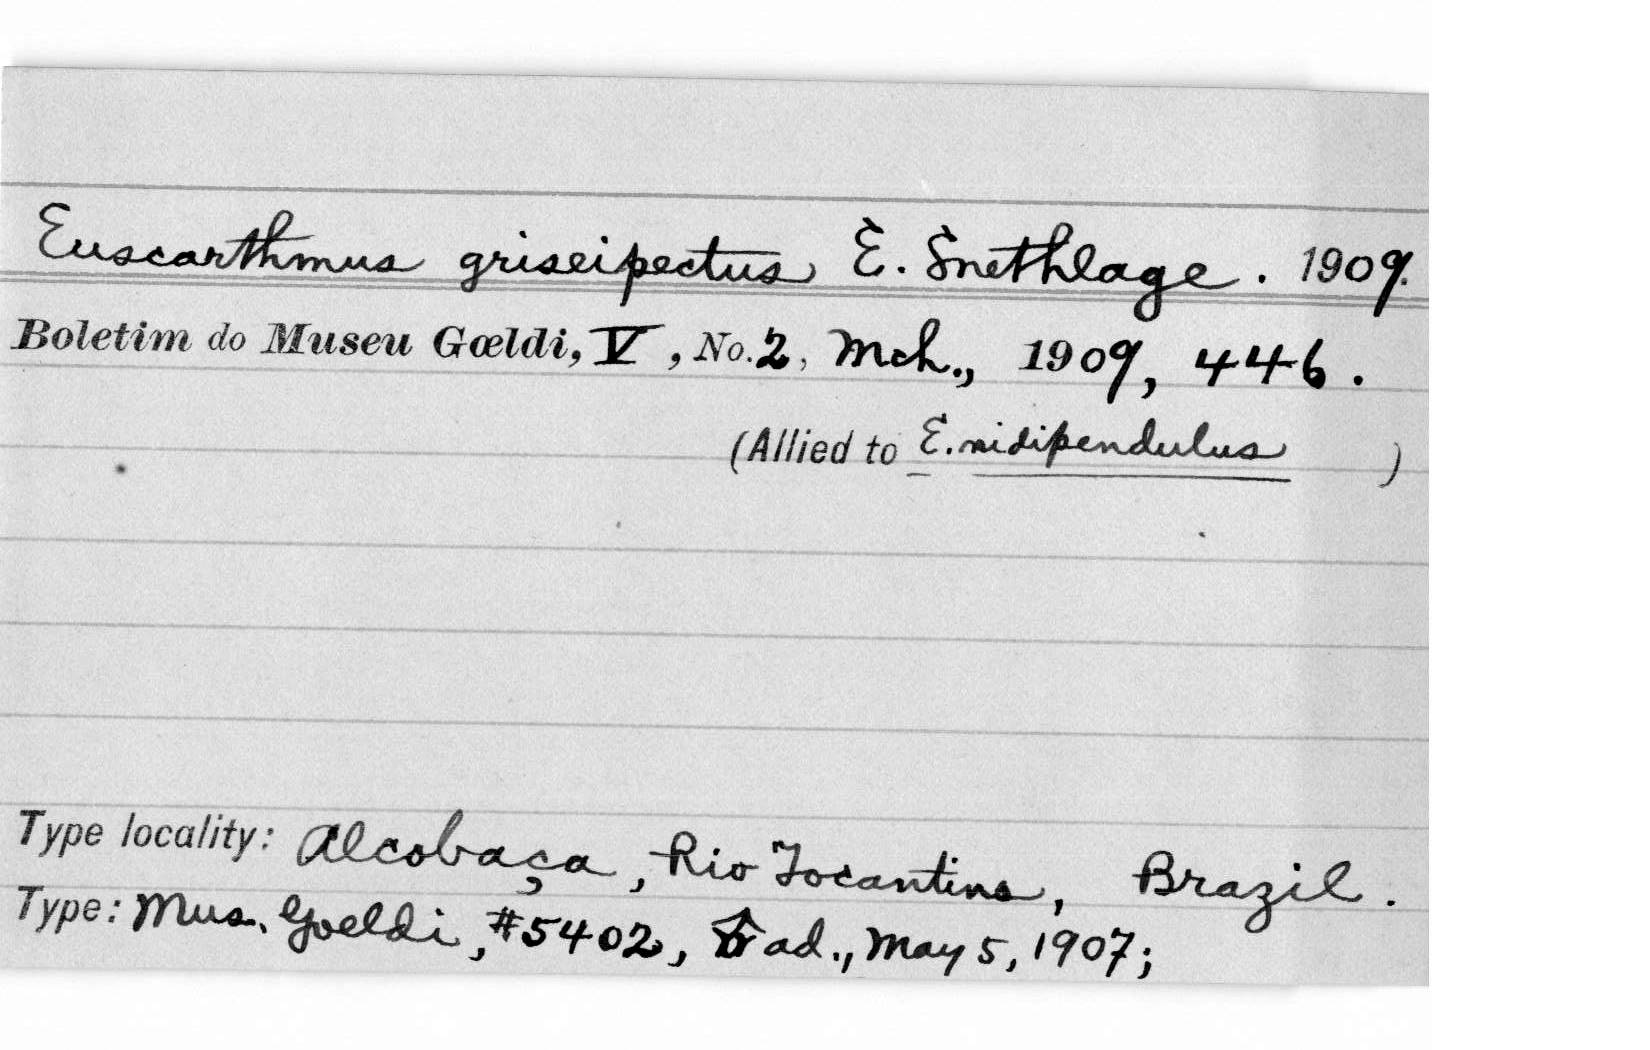 Euscarthmus griseipectus E. Snethlage. 1909.
Boletim do Museu Gœldi, V, No. 2, Mch., 1909, 446.
(Allied to E. nidipendulus )
Type locality: Alcobaça, Rio Tocantins, Brazil.
Type: Mus. Goeldi, #5402, ad., May 5, 1907;